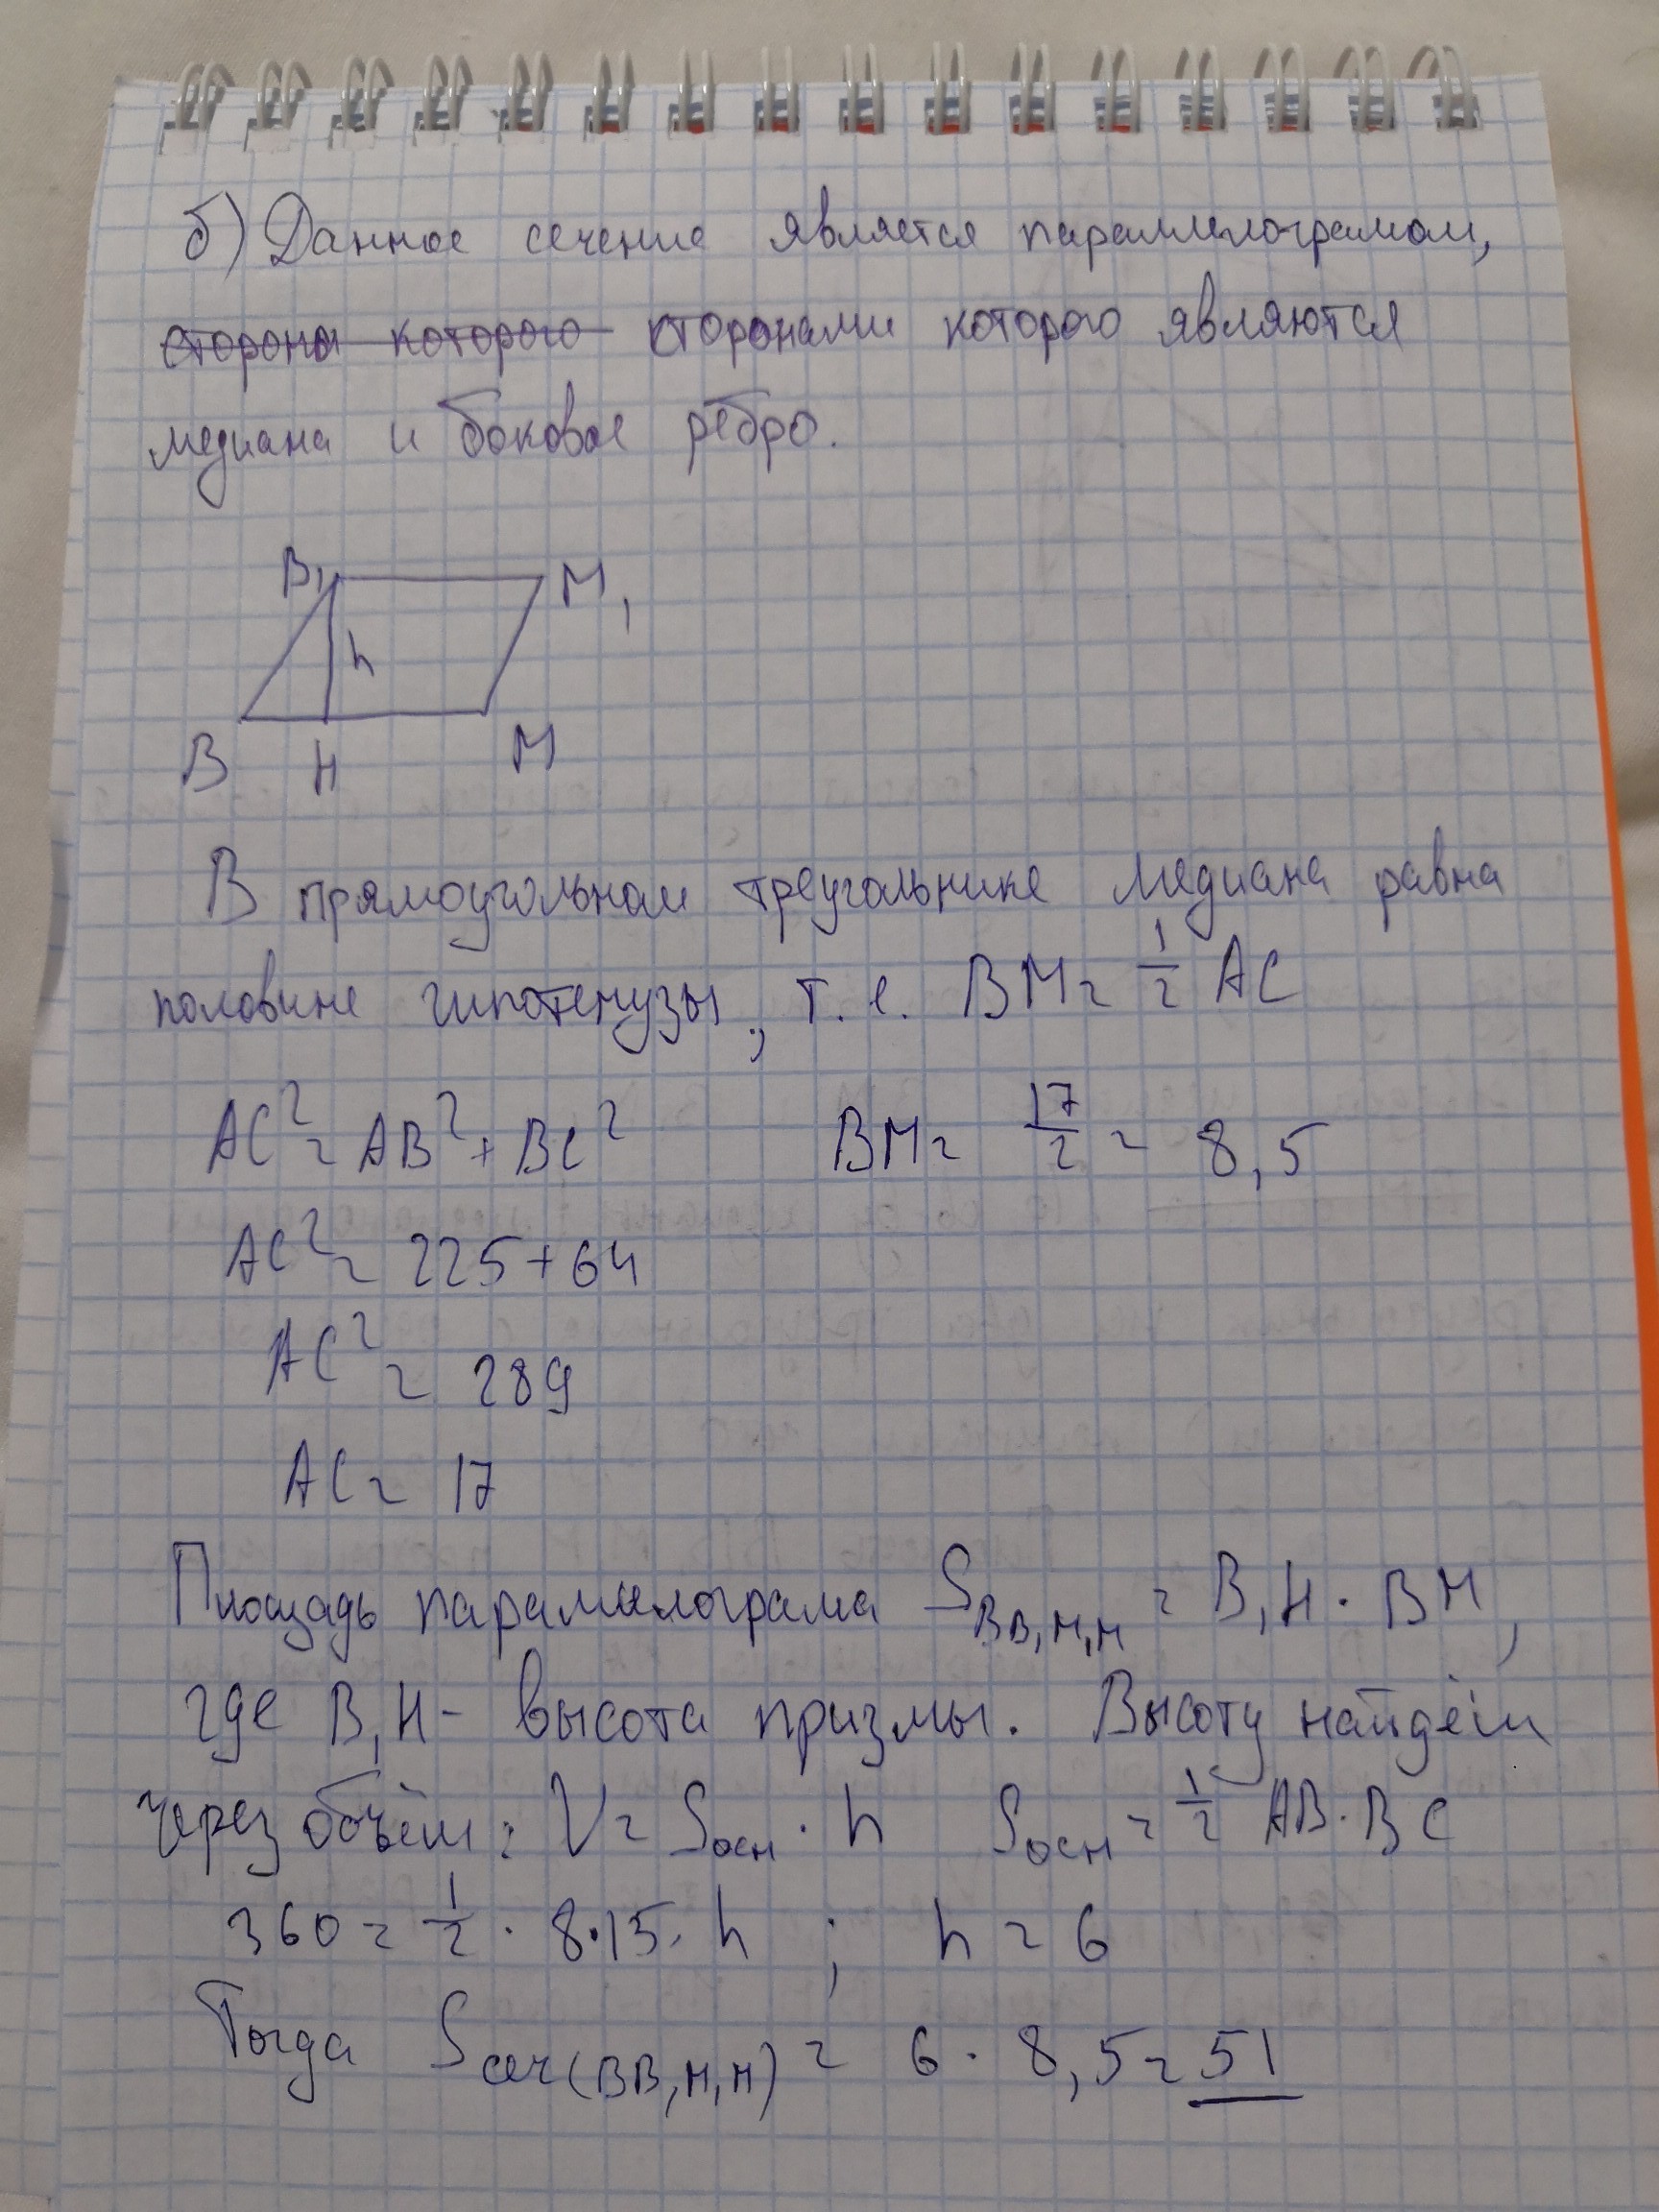 б) Данное сечение является параллелограмом,
стороны которого сторонами которого являются
медиана и боковое ребро.
B₁ M₁
h
B H M
В прямоугольном треугольнике медиана равна
половине гипотенузы, т. е. BM = 1/2 AC
AC² = AB² + BC² BM = 17/2 = 8,5
AC² = 225 + 64
AC² = 289
AC = 17
Площадь параллелограма S BB₁M₁M = B₁H · BM,
где B₁H - высота призмы. Высоту найдём
через объём: V = Sосн · h Sосн = 1/2 AB · BC
360 = 1/2 · 8 · 15 · h ; h = 6
Тогда Sсеч(BB₁M₁M) = 6 · 8,5 = 51